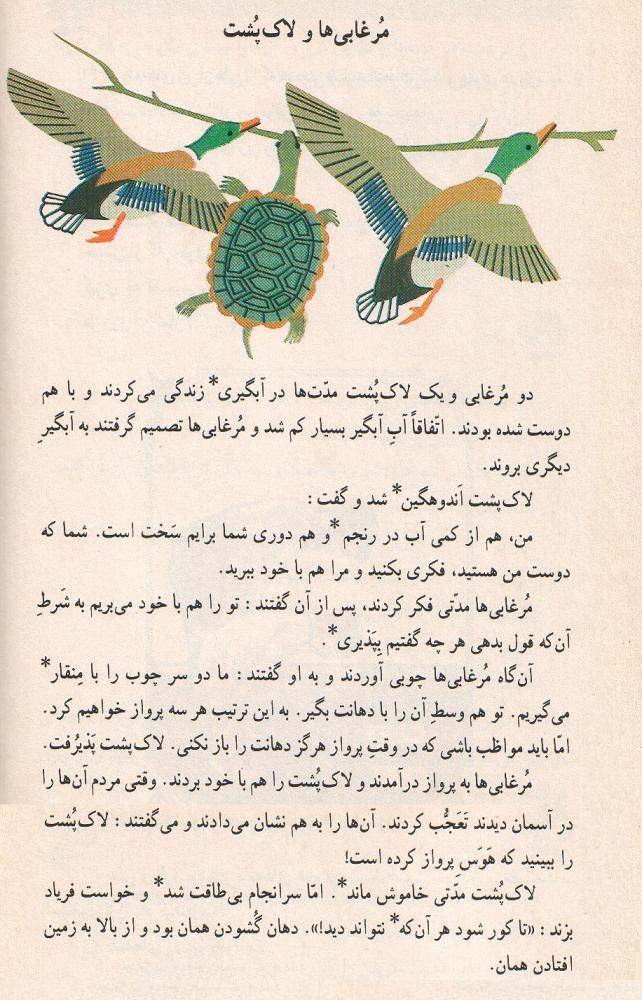 مُرغابی‌ها و لاک‌پُشت
دو مُرغابی و یک لاک‌پُشت مدّت‌ها در آبگیری* زندگی می‌کردند و با هم
دوست شده بودند. اتّفاقاً آبِ آبگیر بسیار کم شد و مُرغابی‌ها تصمیم گرفتند به آبگیرِ
دیگری بروند.
لاک‌پشت اَندوهگین* شد و گفت :
من، هم از کمی آب در رنجم* و هم دوری شما برایم سَخت است. شما که
دوست من هستید، فکری بکنید و مرا هم با خود ببرید.
مُرغابی‌ها مدّتی فکر کردند، پس از آن گفتند : تو را هم با خود می‌بریم به شَرطِ
آن‌که قول بدهی هر چه گفتیم بِپَذیری*.
آن‌گاه مُرغابی‌ها چوبی آوردند و به او گفتند : ما دو سر چوب را با مِنقار*
می‌گیریم. تو هم وسطِ آن را با دهانت بگیر. به این ترتیب هر سه پرواز خواهیم کرد.
امّا باید مواظب باشی که در وقتِ پرواز هرگز دهانت را باز نکنی. لاک‌پشت پَذیرُفت.
مُرغابی‌ها به پرواز درآمدند و لاک‌پُشت را هم با خود بردند. وقتی مردم آن‌ها را
در آسمان دیدند تَعَجُّب کردند. آن‌ها را به هم نشان می‌دادند و می‌گفتند : لاک‌پُشت
را ببینید که هَوَسِ پرواز کرده است!
لاک‌پُشت مدّتی خاموش ماند*. امّا سرانجام بی‌طاقت شد* و خواست فریاد
بزند : «تا کور شود هر آن‌که* نتواند دید!». دهان گُشودن همان بود و از بالا به زمین
افتادن همان.